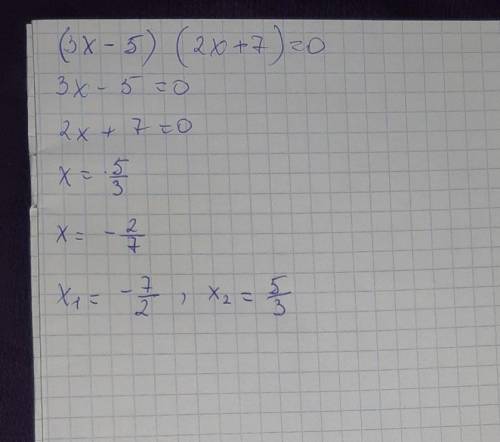 (3x - 5) (2x + 7) = 0
3x - 5 = 0
2x + 7 = 0
x = 5/3
x = - 2/7
x₁ = - 7/2 , x₂ = 5/3